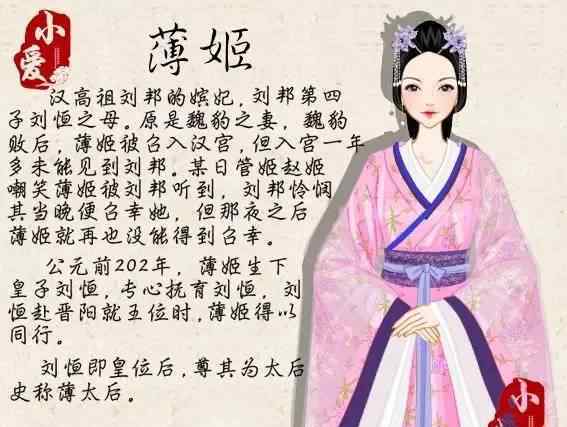 小爱
薄姬
汉高祖刘邦的嫔妃,刘邦第四
子刘恒之母。原是魏豹之妻,魏豹
败后,薄姬被召入汉宫,但入宫一年
多未能见到刘邦。某日管姬赵姬
嘲笑薄姬被刘邦听到,刘邦怜悯
其当晚便召幸她,但那夜之后
薄姬就再也没能得到召幸。
公元前202年,薄姬生下
皇子刘恒,专心抚育刘恒,刘
恒赴晋阳就王位时,薄姬得以
同行。
刘恒即皇位后,尊其为太后
史称薄太后。
小